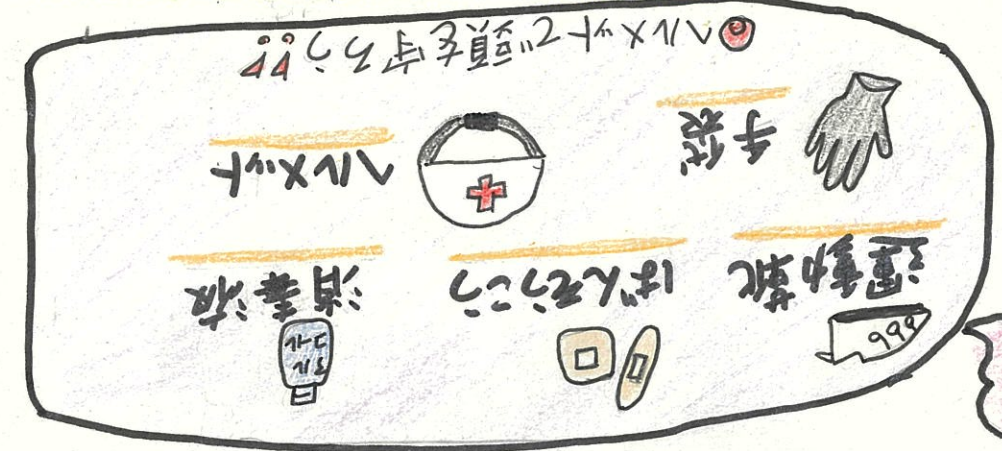 運動靴
ばんそうこう
アル
コール
消毒液
手袋
ヘルメット
ヘルメットで頭を守ろう!!